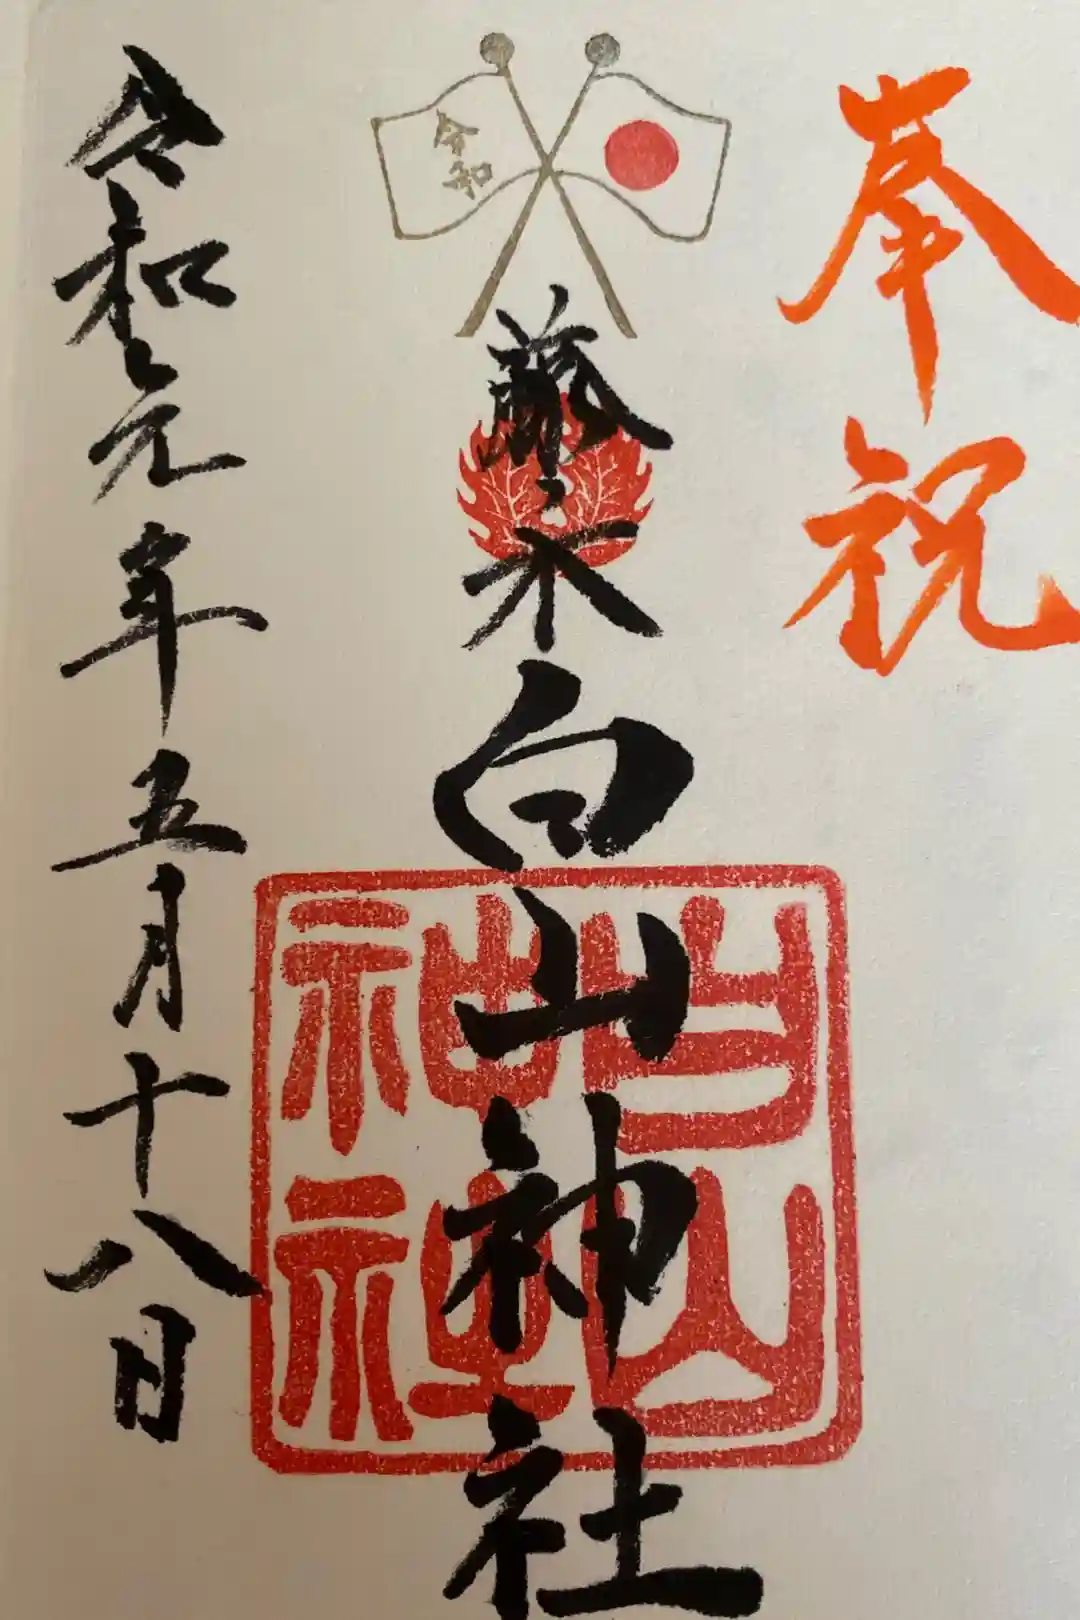 奉祝
令和
藤ノ木白山神社
白山
神社
令和元年五月十八日